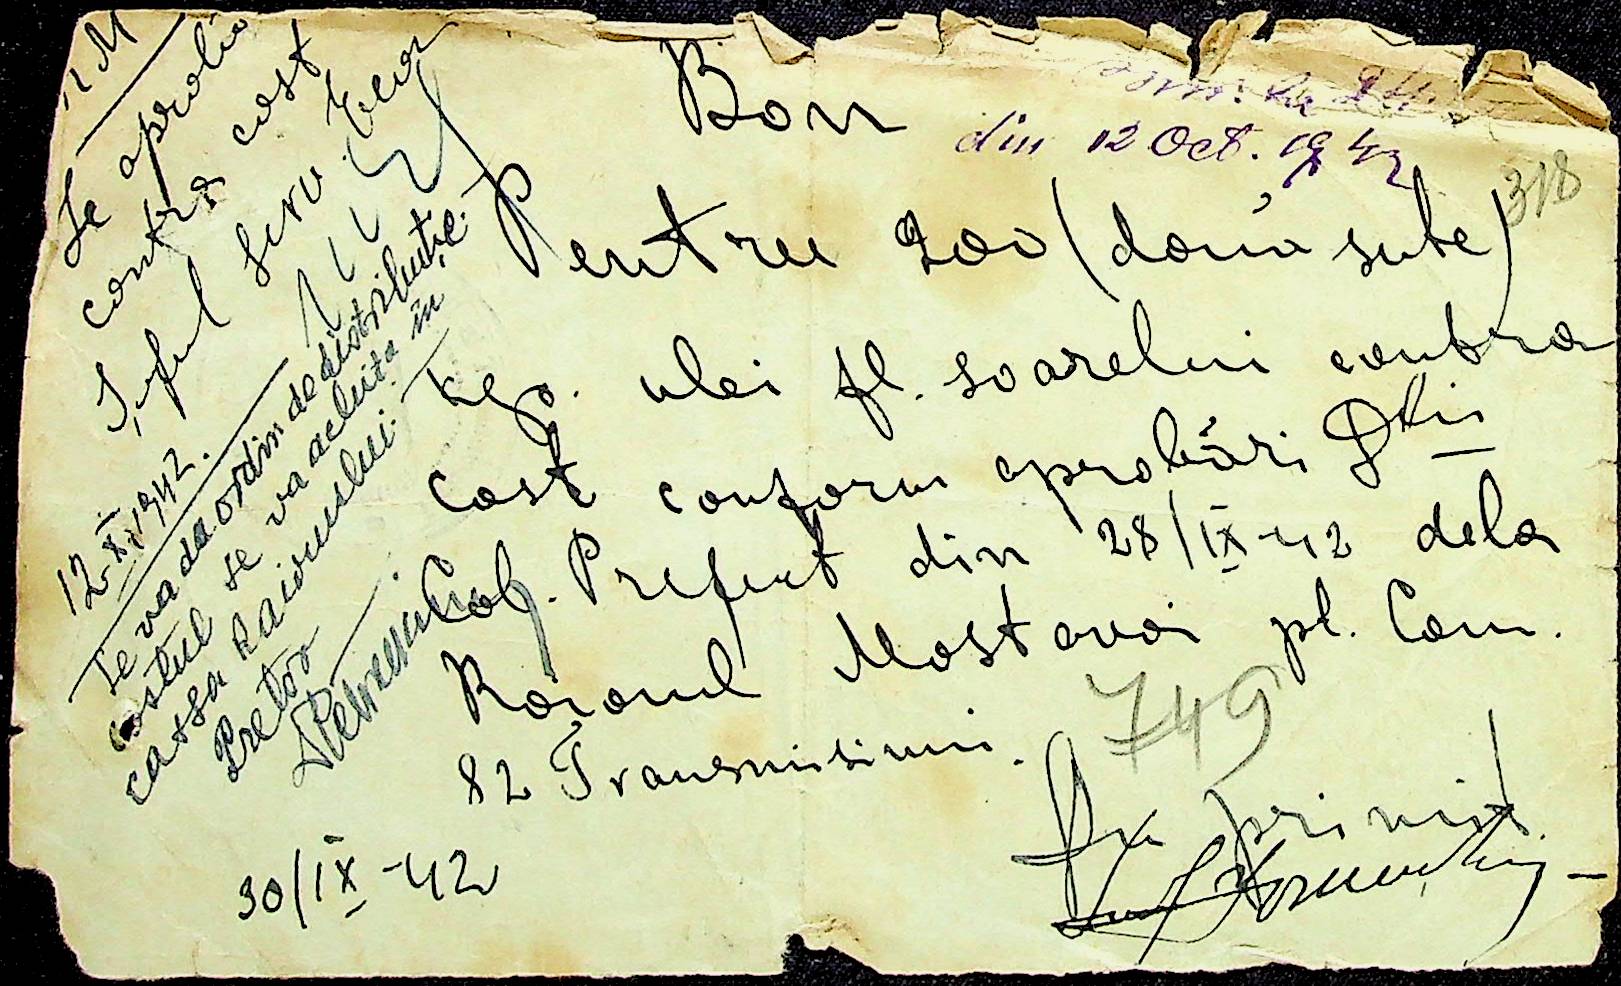 Bon
din 12 Oct. 1942
318
Pentru 200 (două sute)
kgr. ulei fl. soarelui contra
cost conform aprobări Dlui
Col. Prefect din 28/IX-42 dela
Raionul Mostovoi pt. Com.
82 Transmisiuni.
749
Am primit.
30/IX-42
Se aprobă
contra cost
Șeful Serv. Econ
12-X-1942.
Se va da ordin de distribuție.
costul se va achita în
cassa Raionului.
Pretor